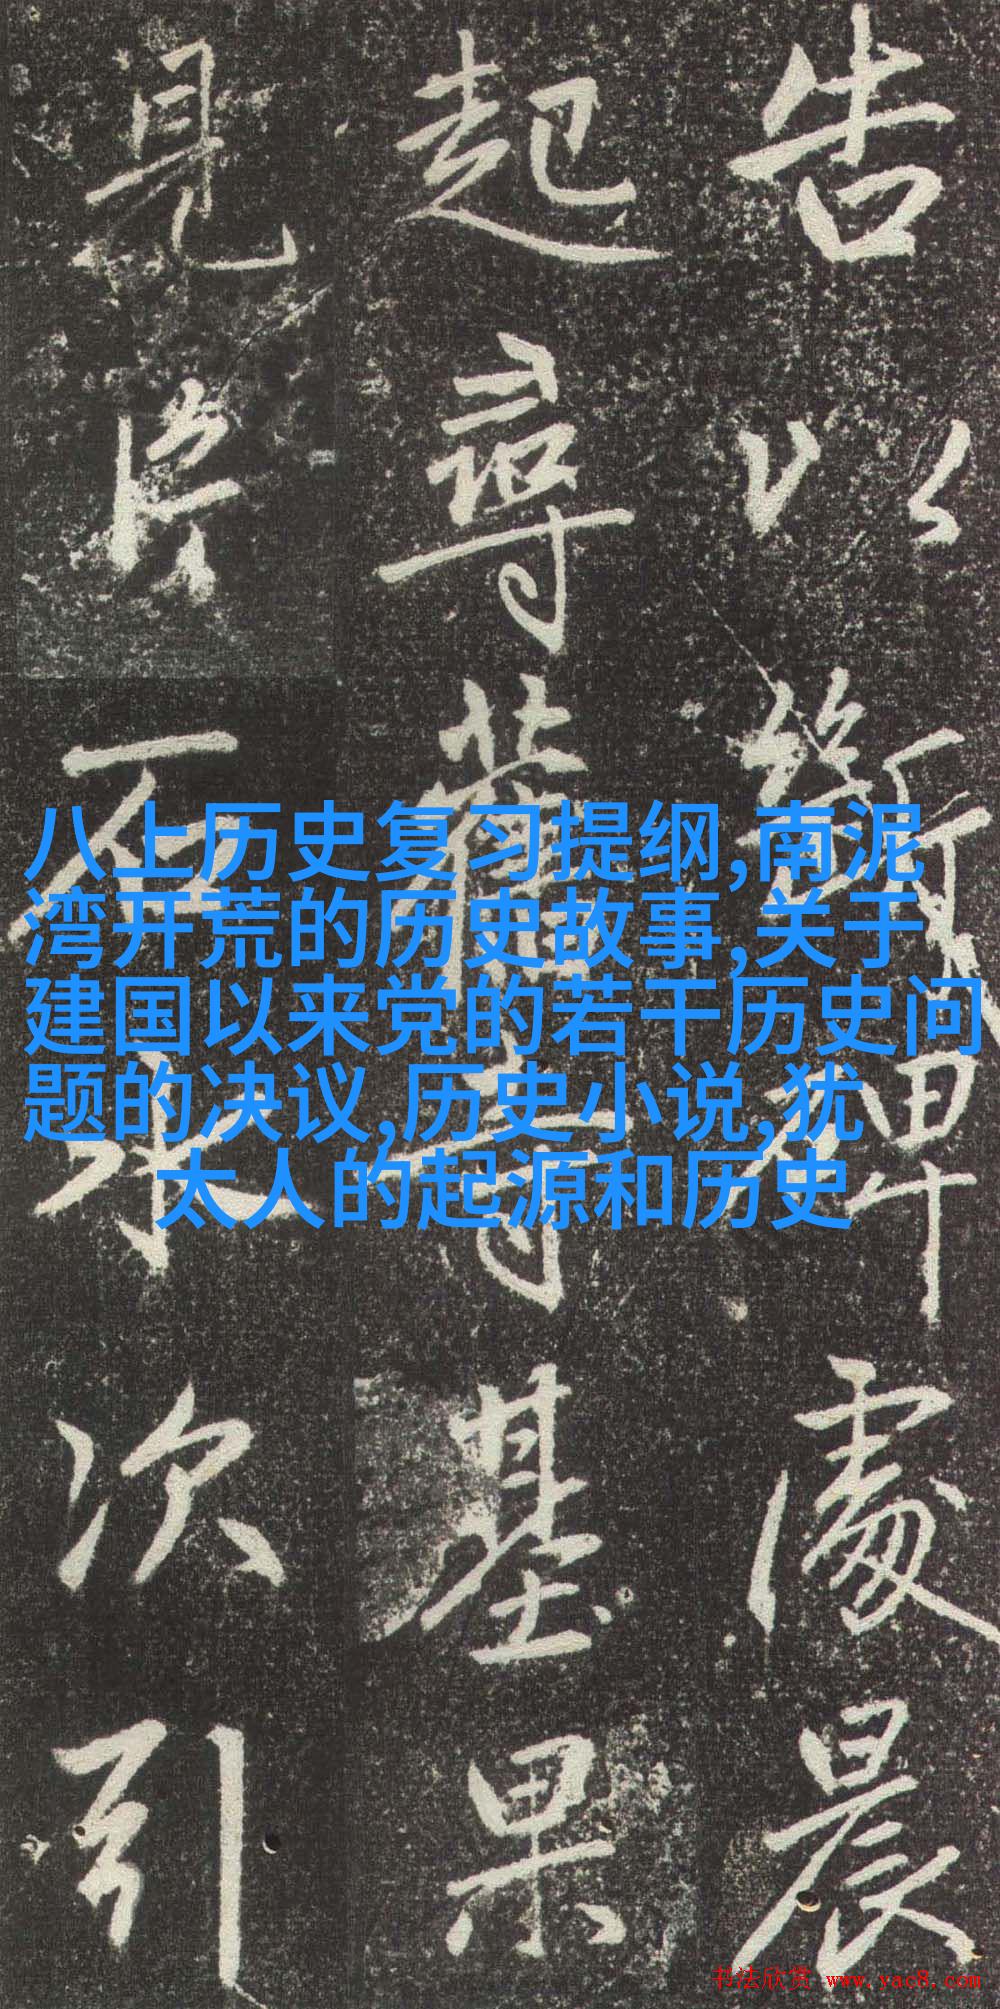 告以斷碑處晨
起尋舊寺基果
見片石水次引
八上历史复习提纲,南泥
湾开荒的历史故事,关于
建国以来党的若干历史问
题的决议,历史小说,犹
太人的起源和历史
书法欣赏 www.yac8.com